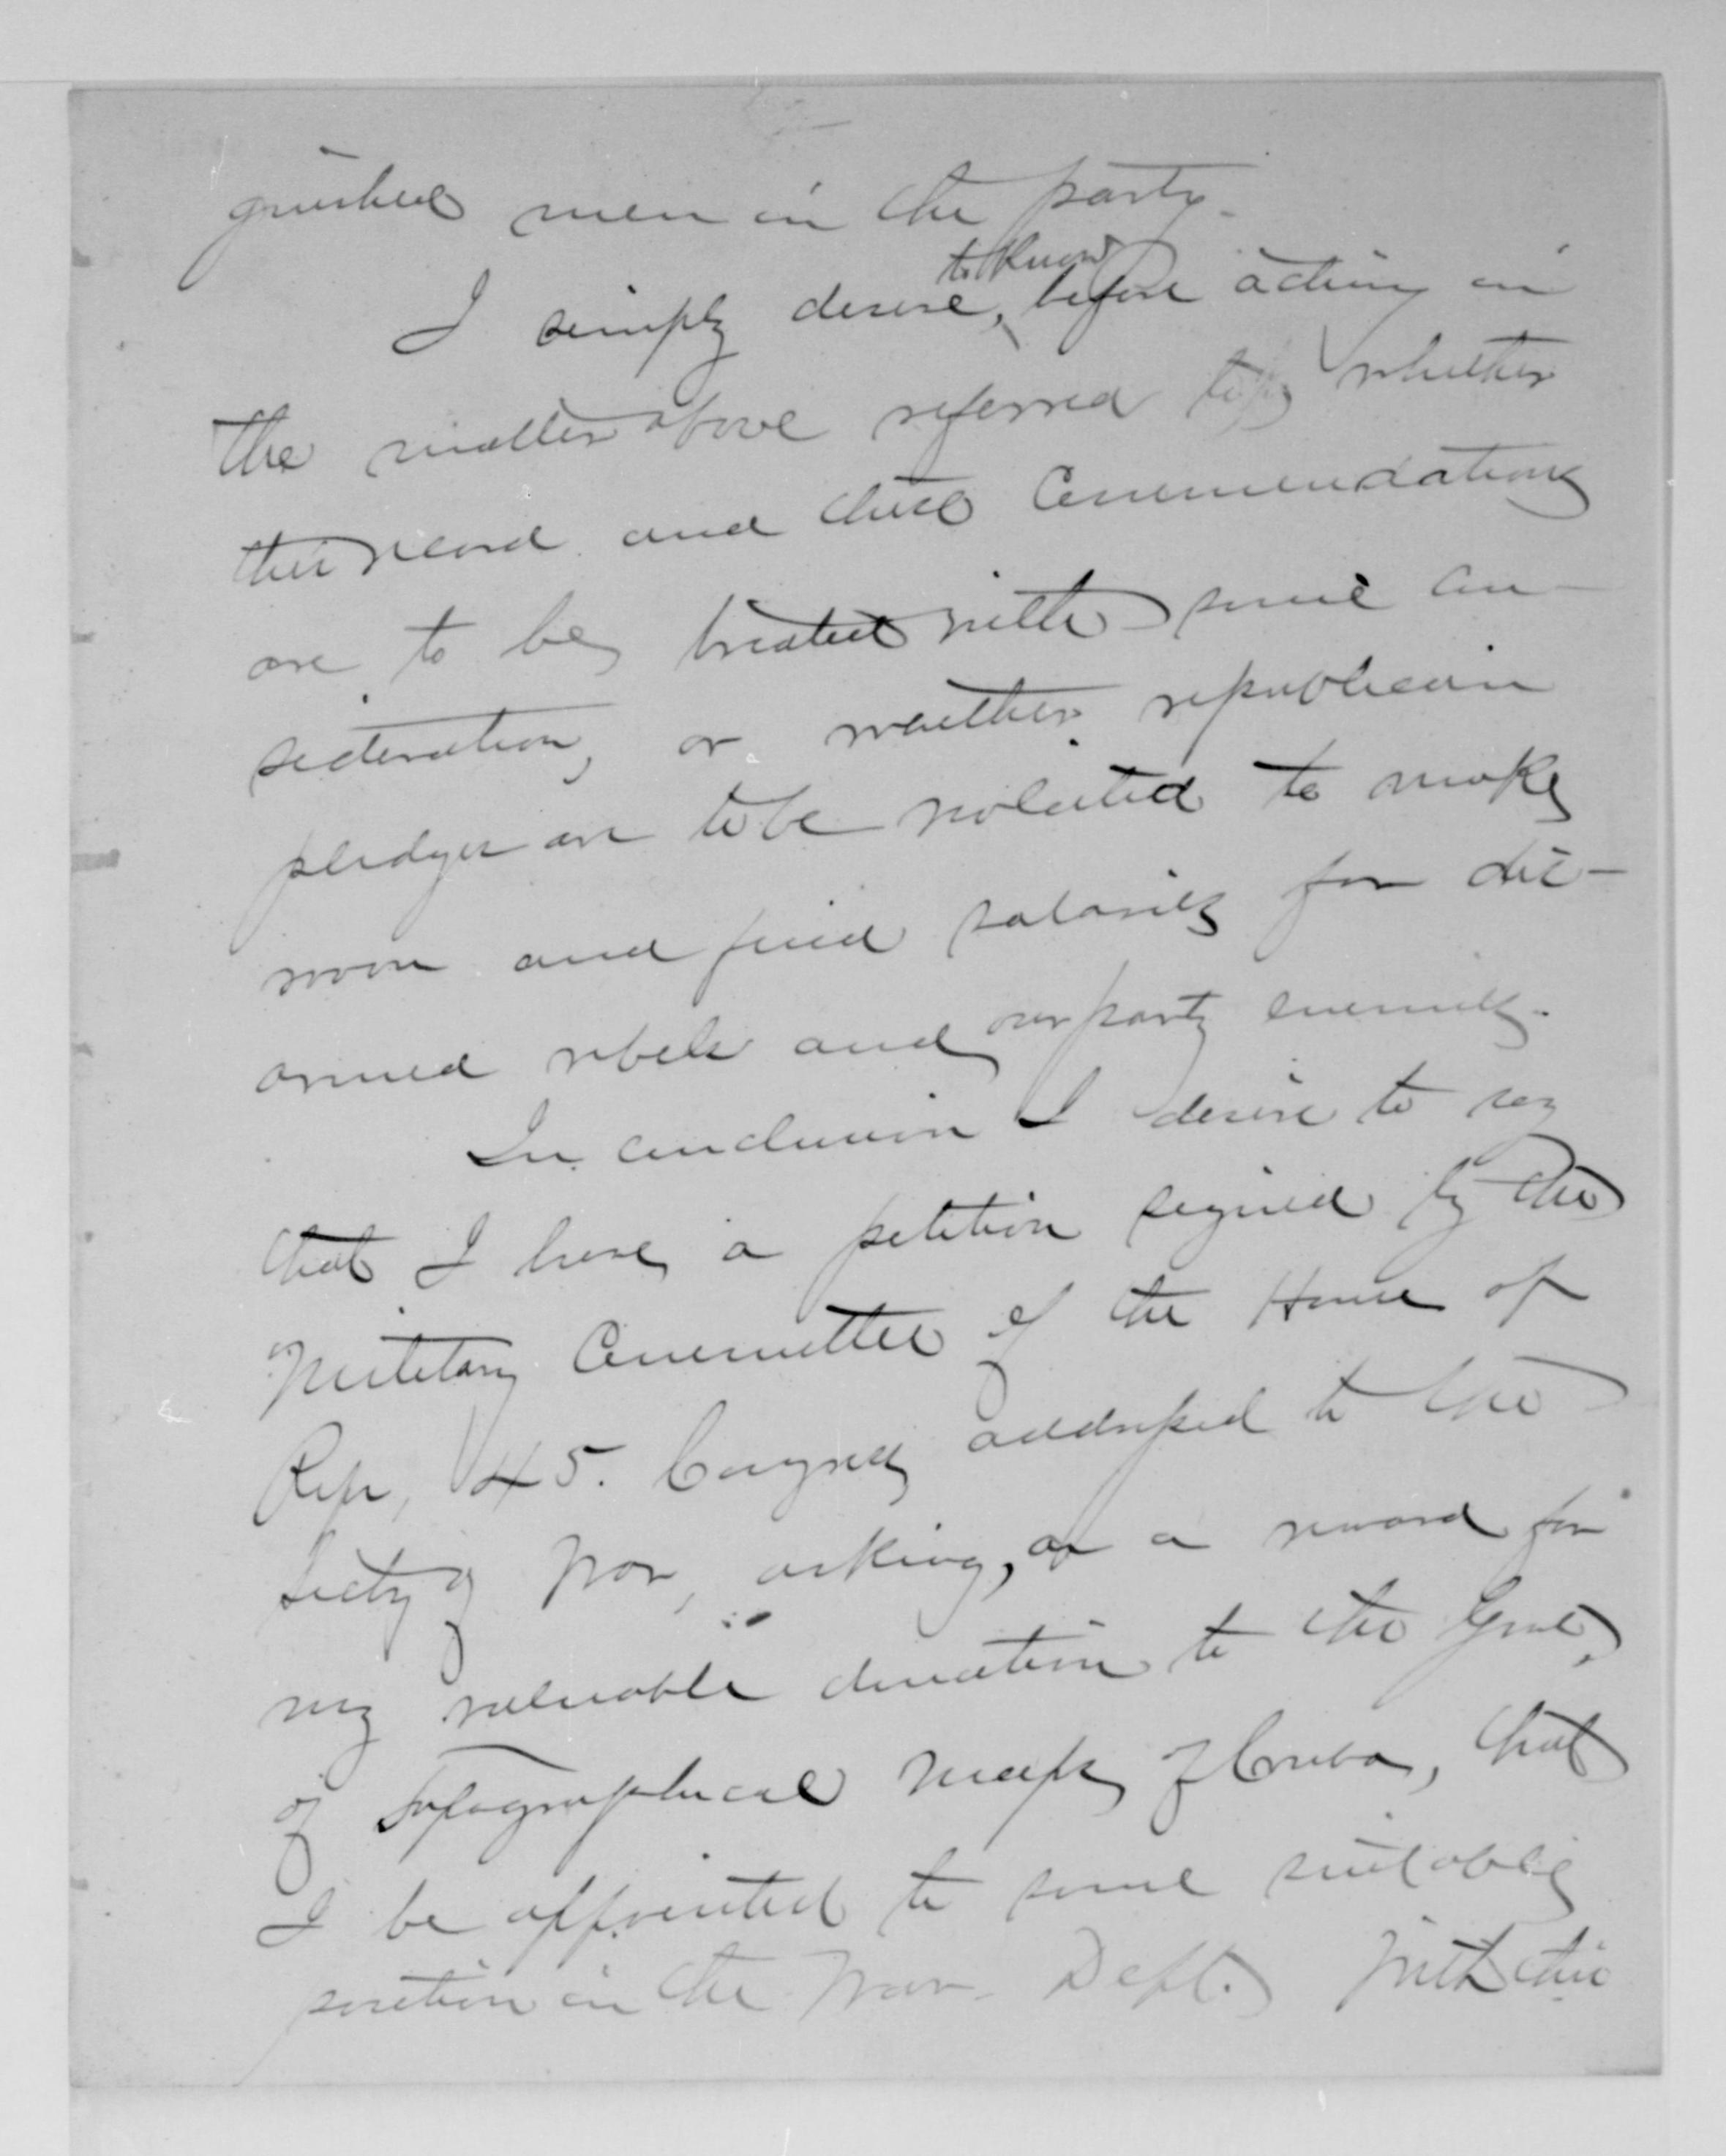 guished men in the party.
to know
I simply desire, before acting in
the matter above referred to, whether
this record and these Commendations
are to be treated with some con-
sideration, or whether republican
pledges are to be violated to make
room and find salaries for dis-
armed rebels and our party enemies.
In conclusion I desire to say
that I have a petition signed by the
Military Committee of the House of
Rep, 45. Congress addressed to the
Secty of War, asking, as a reward for
my valuable donation to the Govt,
of Topographical Maps of Cuba, that
I be appointed to some suitable
position in the War Dept. With this